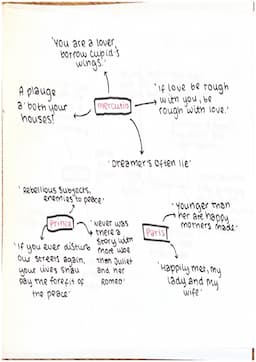 'You are a lover,
borrow cupid's
wings.'
A plauge
a' both your
houses!'
Mercutio
'If love be rough
with you, be
rough with love.'
'Dreamers often lie'
'Rebellious subjects,
enemies to peace'
Prince
'If you ever disturb
our streets again,
your lives shall
pay the forefit of
the peace'
'Never was
there a
story with
more woe
than Juliet
and her
Romeo'
Paris
'Younger than
her are happy
mothers made'
'Happily met, my
lady and my
wife'